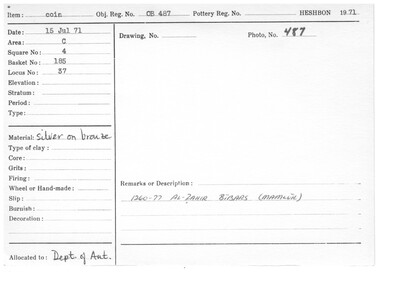 Item: coin Obj. Reg. No. OB 487 Pottery Reg. No. HESHBON 1971
Date: 15 Jul 71
Drawing, No. Photo, No. 487
Area: C
Square No: 4
Basket No: 185
Locus No: 37
Elevation:
Stratum:
Period:
Type:
Material: silver on bronze
Type of clay:
Core:
Grits:
Firing:
Wheel or Hand-made:
Remarks or Description:
Slip:
1260-77 AL-ZAHIR BIBARS (MAMLUK)
Burnish:
Decoration:
Allocated to: Dept. of Ant.